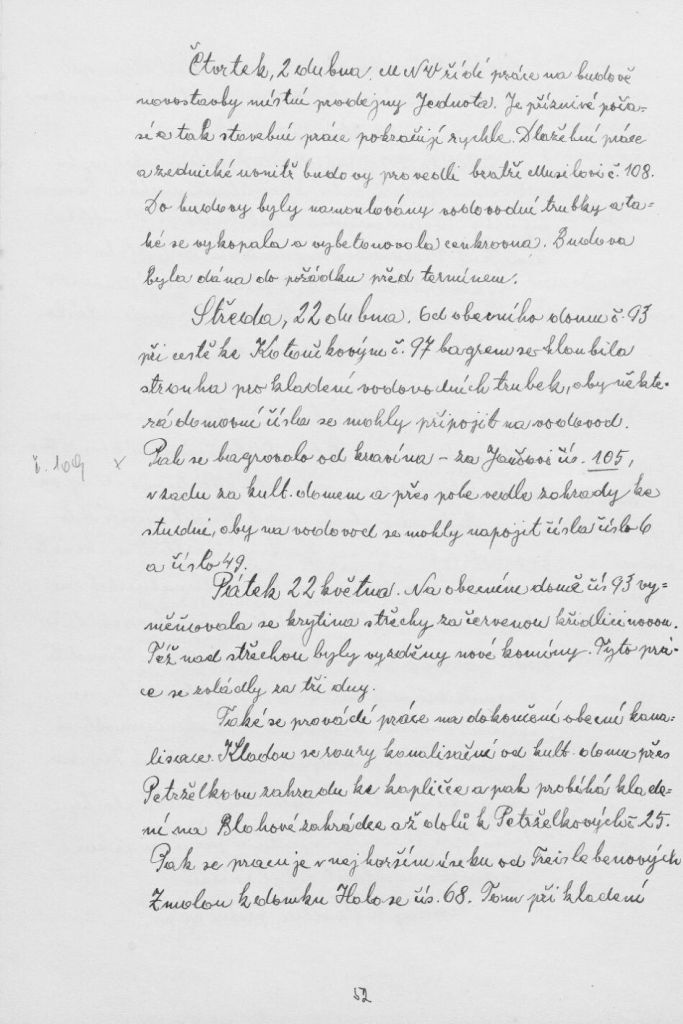 Čtvrtek, 2 dubna. MNV řídí práce na budově
novostavby místní prodejny Jednota. Je příznivé poča-
sí a tak stavební práce pokračují rychle. Dlažební práce
a zednické uvnitř budovy provedli bratři Musilovi č. 108.
Do budovy byly namontovány vodovodní trubky a ta-
ké se vykopala a vybetonovala cenkrovna. Budova
byla dána do pořádku před termínem.
Středa, 22 dubna. Od obecního domu č. 93
při cestě ke Kotoučkovým č. 97 bagrem se hloubila
strouha pro kladení vodovodních trubek, aby někte-
rá domovní čísla se mohly připojit na vodovod.
č. 109 x Pak se bagrovalo od kravína - za Jaršovi čís. 105,
vzadu za kult. domem a přes pole vedle zahrady ke
studni, aby na vodovod se mohly napojit čísla číslo 6
a číslo 49.
Pátek 22 května. Na obecním domě čís 93 vy=
měňovala se krytina střechy za červenou křidlici novou.
Též nad střechou byly vyzděny nové komíny. Tyto prá-
ce se zvládly za tři dny.
Také se provádí práce na dokončení obecní kana-
lisace. Kladou se roury kanalisační od kult. domu přes
Petrželkovu zahradu ke kapličce a pak probíhá klade=
ní na Blahové zahrádce až dolů k Petrželkovým č. 25.
Pak se pracuje v nejhorším úseku od Freislebenových
Zmolou k domku Halose čís. 68. Tam při kladení
52